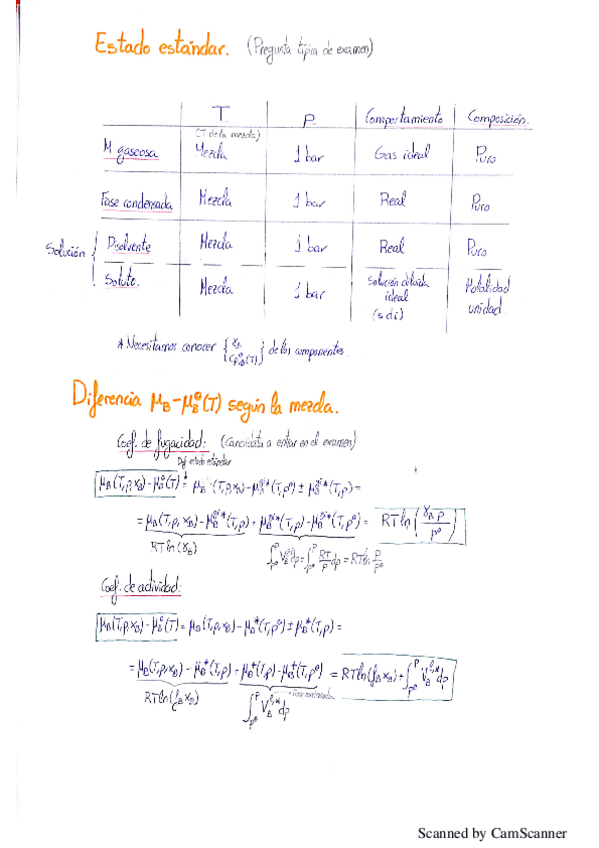 Estado estándar. (Pregunta típica de examen)
T P Comportamiento Composición.
(T de la mezcla)
M gaseosa Mezcla 1 bar Gas ideal Puro
Fase condensada Mezcla 1 bar Real Puro
Solución { Disolvente Mezcla 1 bar Real Puro
Soluto. Mezcla 1 bar Solución diluida ideal (s.d.i) Molalidad unidad.
* Necesitamos conocer { } de los componentes.
Diferencia μB − μB°(T) según la mezcla.
Coef. de fugacidad: (Candidata a entrar en el examen)
Def estado estándar
μB(T,p,xB) − μB°(T) = μB(T,p,xB) − μB^gi*(T,p°) ± μB^gi*(T,p) =
= μB(T,p,xB) − μB^gi*(T,p) + μB^gi*(T,p) − μB^gi*(T,p°) = RT ln(γB p / p°)
RT ln(γB) ∫p°^p VB^gi dp = ∫p°^p RT/p dp = RT ln p/p°
Coef. de actividad:
μB(T,p,xB) − μB°(T) = μB(T,p,xB) − μB*(T,p°) ± μB*(T,p) =
= μB(T,p,xB) − μB*(T,p) + μB*(T,p) − μB*(T,p°) = RT ln(fB xB) + ∫p°^p VB^l,* dp
RT ln(fB xB) ∫p°^p VB^l,* dp → Fase condensada
Scanned by CamScanner